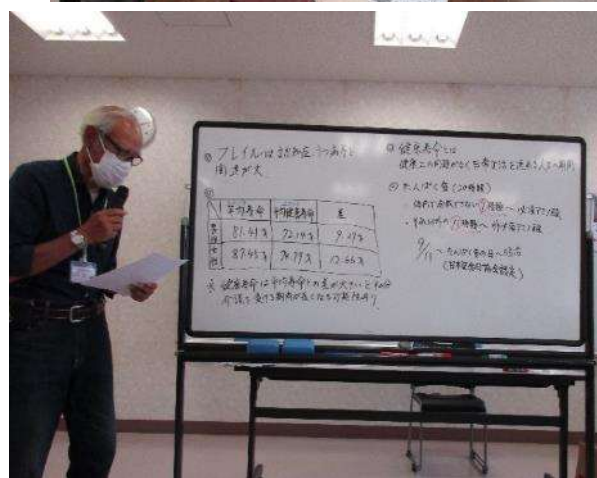 ◎ フレイルは認知症、うつ病と
関連が大
平均寿命 平均健康寿命 差
男性 81.41才 72.14才 9.27才
女性 87.45才 74.79才 12.66才
※ 健康寿命は平均寿命との差が大きいとその分
介護を受ける期間が長くなる可能性あり
◎ 健康寿命とは
健康上の問題がなく日常生活を送れる人生の期間
◎ たんぱく質(20種類)
・体内で合成できない9種類〜必須アミノ酸
・それ以外の11種類〜非必須アミノ酸
9/11〜たんぱく質の日〜